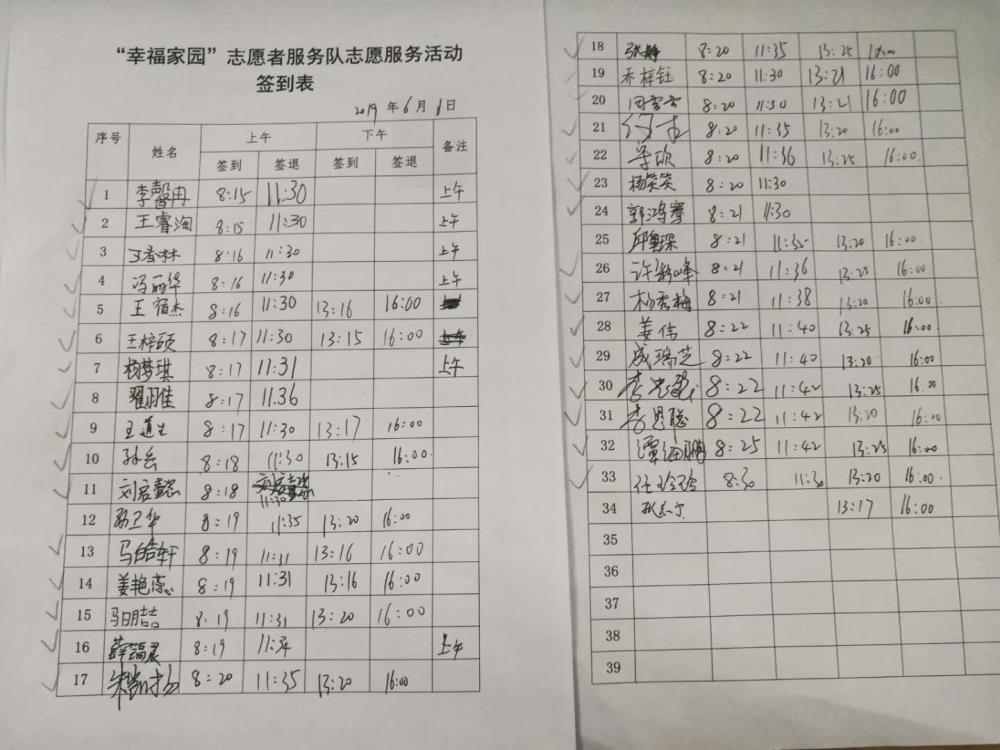 “幸福家园”志愿者服务队志愿服务活动
签到表
2019 年 6 月 1 日
序号 姓名 上午 下午 备注
签到 签退 签到 签退
1 李馨冉 8:15 11:30 上午
2 王睿淘 8:15 11:30 上午
3 王春林 8:16 11:30 上午
4 冯丽华 8:16 11:30 上午
5 王宿杰 8:16 11:30 13:16 16:00
6 王梓硕 8:17 11:30 13:15 16:00
7 杨梦琪 8:17 11:31 上午
8 翟羽佳 8:17 11.36
9 王道生 8:17 11:30 13:17 16:00
10 孙云 8:18 11:30 13:15 16:00
11 刘启懿 8:18 11:30
12 孙卫华 8:19 11:35 13:20 16:00
13 马皓轩 8:19 11:31 13:16 16:00
14 姜艳蕊 8:19 11:31 13:16 16:00
15 马明喆 8:19 11:31 13:20 16:00
16 8:19 11:34 上午
17 8:20 11:35 13:20 16:00
18 张静 8:20 11:35 13:25
19 亓梓钰 8:20 11:30 13:21 16:00
20 8:20 11:30 13:21 16:00
21 8:20 11:35 13:20 16:00
22 8:20 11:36 13:25 16:00
23 杨笑笑 8:20 11:30
24 郭鸿 8:21 11:30
25 8:21 11:35 13:20 16:00
26 许 峰 8:21 11:36 13:25 16:00
27 杨秀梅 8:21 11:38 13:20 16:00
28 姜伟 8:22 11:40 13:25 16:00
29 成瑞芝 8:22 11:40 13:20 16:00
30 李 8:22 11:42 13:25 16:00
31 李思聪 8:22 11:42 13:20 16:00
32 谭海鹏 8:25 11:42 13:25 16:00
33 任玲玲 8:30 11:30 13:20 16:00
34 13:17 16:00
35
36
37
38
39